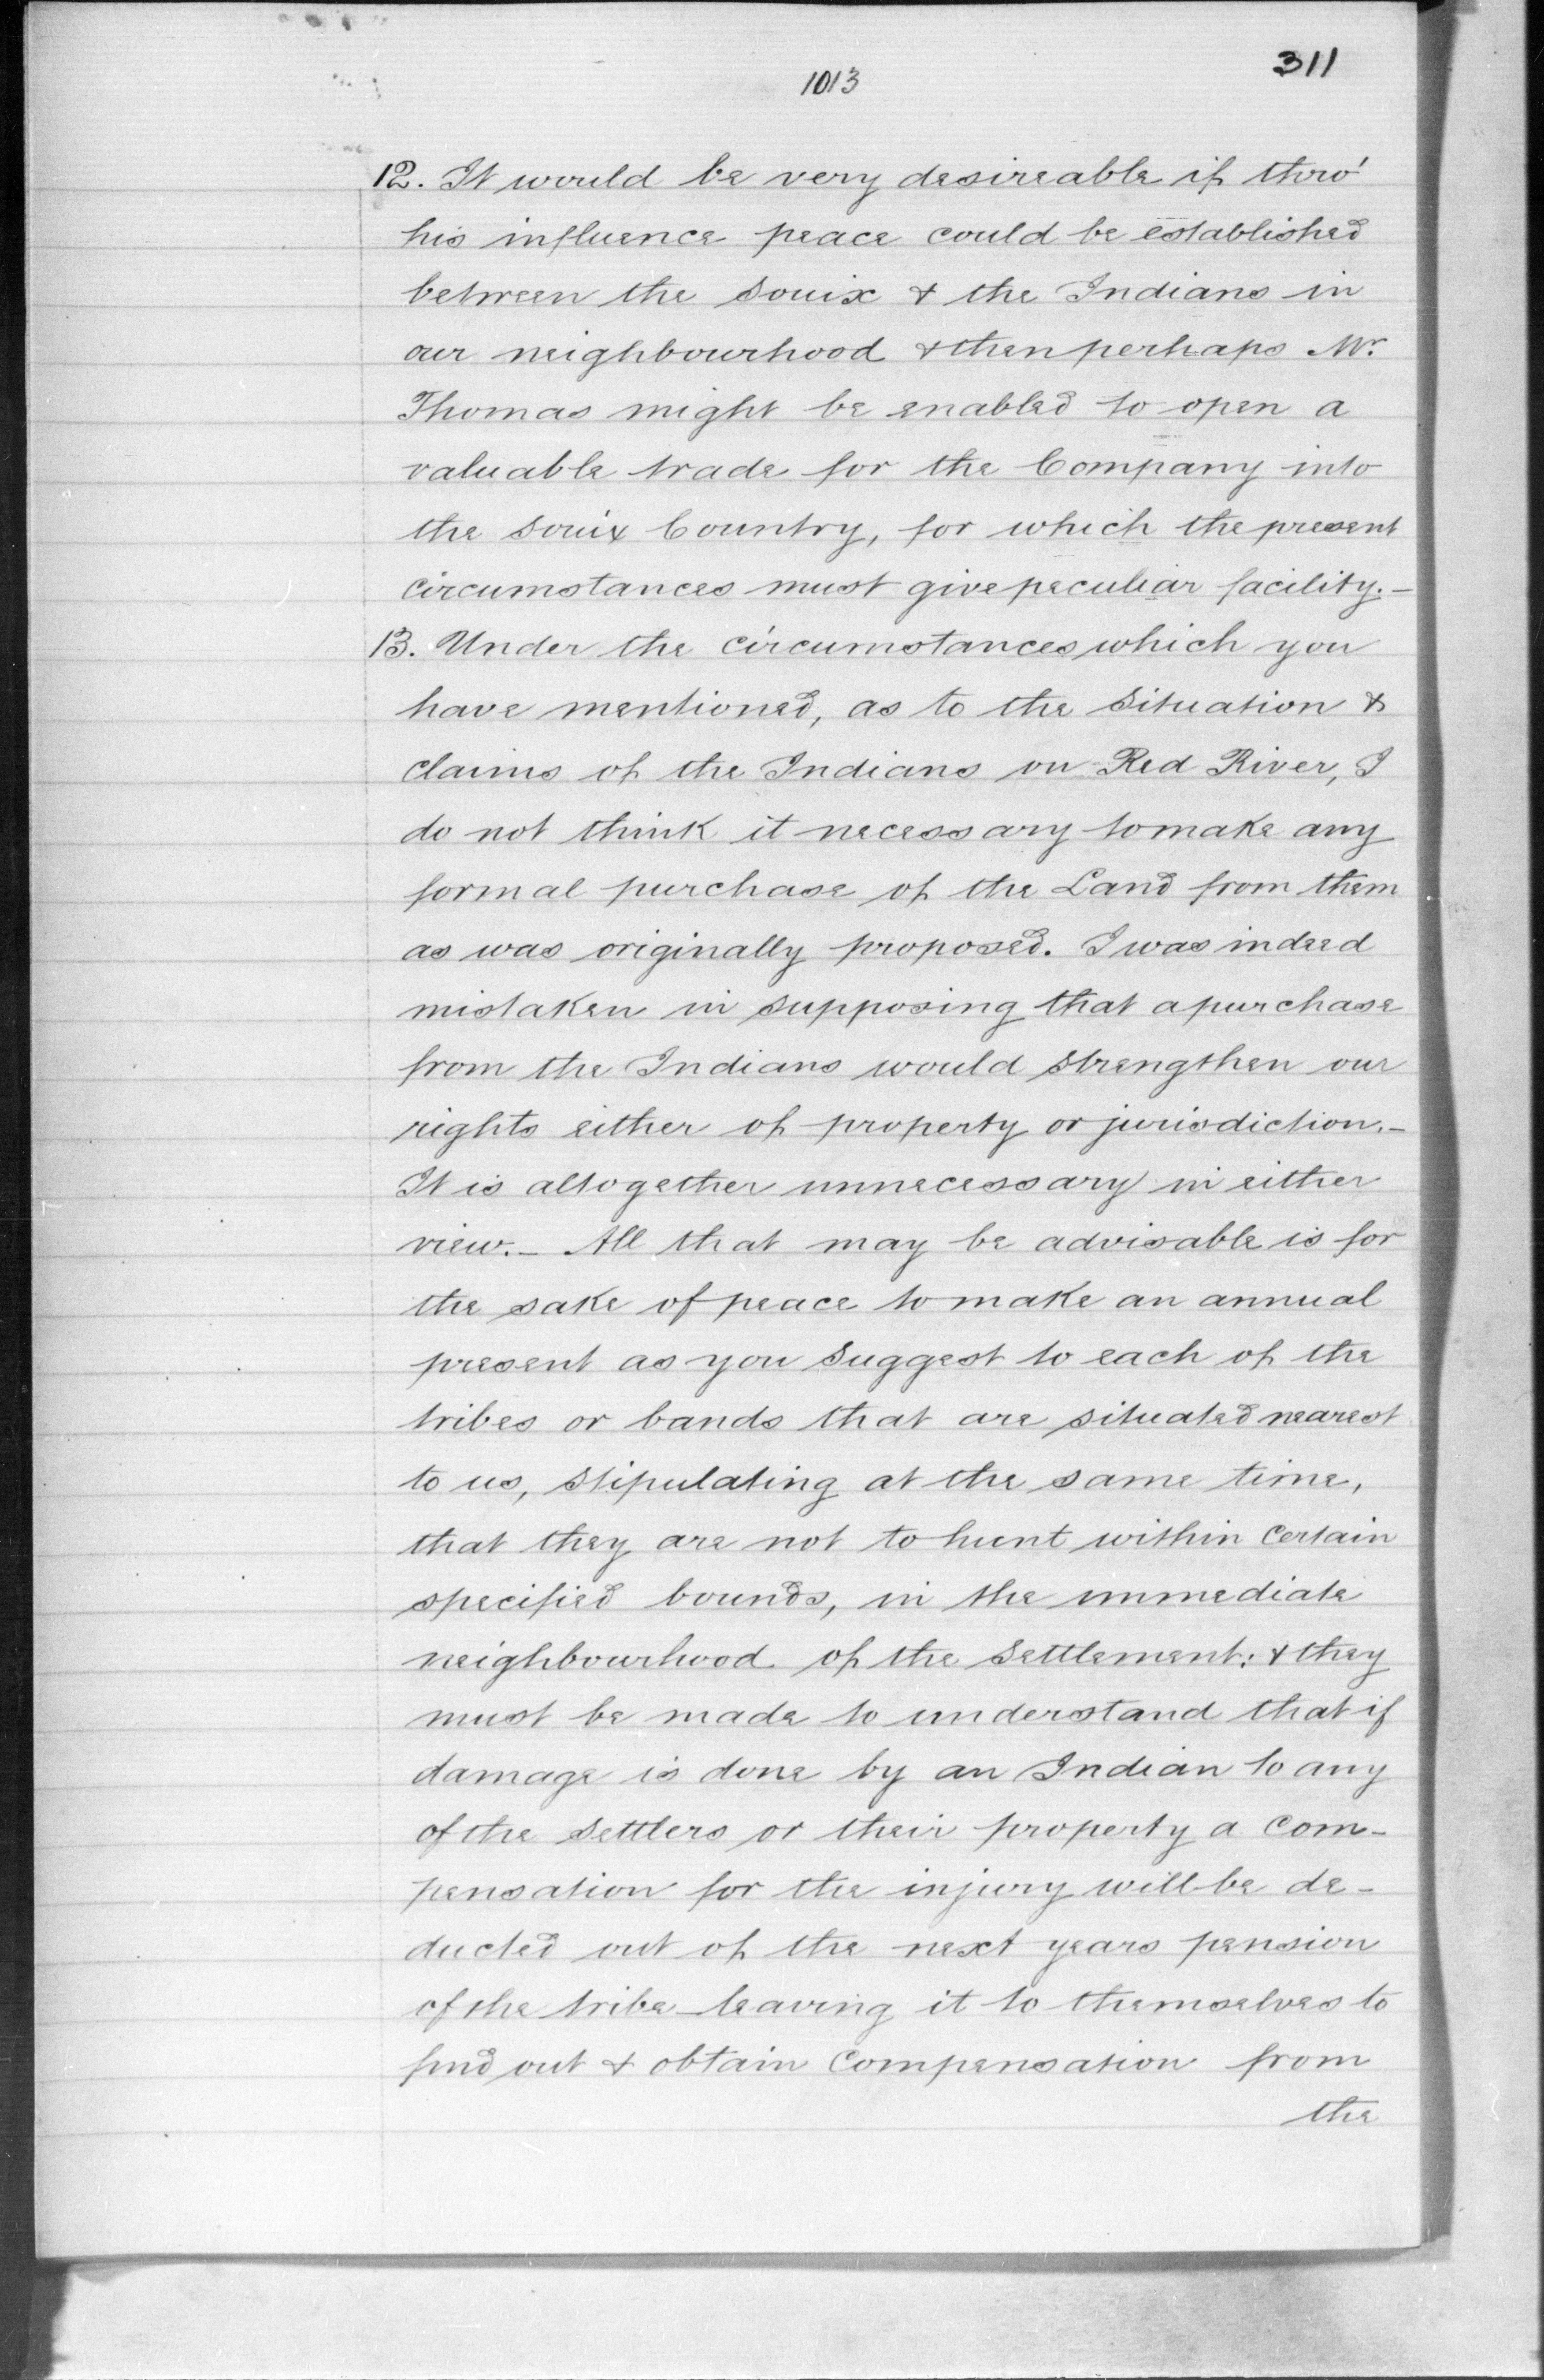 311
1013
12. It would be very desireable if thro'
his influence peace could be established
between the Souix & the Indians in
our neighbourhood & then perhaps Mr.
Thomas might be enabled to open a
valuable trade for the Company into
the Souix Country, for which the present
circumstances must give peculiar facility.-
13. Under the circumstances which you
have mentioned, as to the situation &
claims of the Indians on Red River, I
do not think it necessary to make any
formal purchase of the Land from them
as was originally proposed. I was indeed
mistaken in supposing that a purchase
from the Indians would strengthen our
rights either of property or jurisdiction.-
It is altogether unnecessary in either
view.- All that may be advisable is for
the sake of peace to make an annual
present as you suggest to each of the
tribes or bands that are situated nearest
to us, stipulating at the same time,
that they are not to hunt within certain
specified bounds, in the immediate
neighbourhood of the settlement: & they
must be made to understand that if
damage is done by an Indian to any
of the settlers or their property a com-
pensation for the injury will be de-
ducted out of the next years pension
of the tribe leaving it to themselves to
find out & obtain compensation from
the